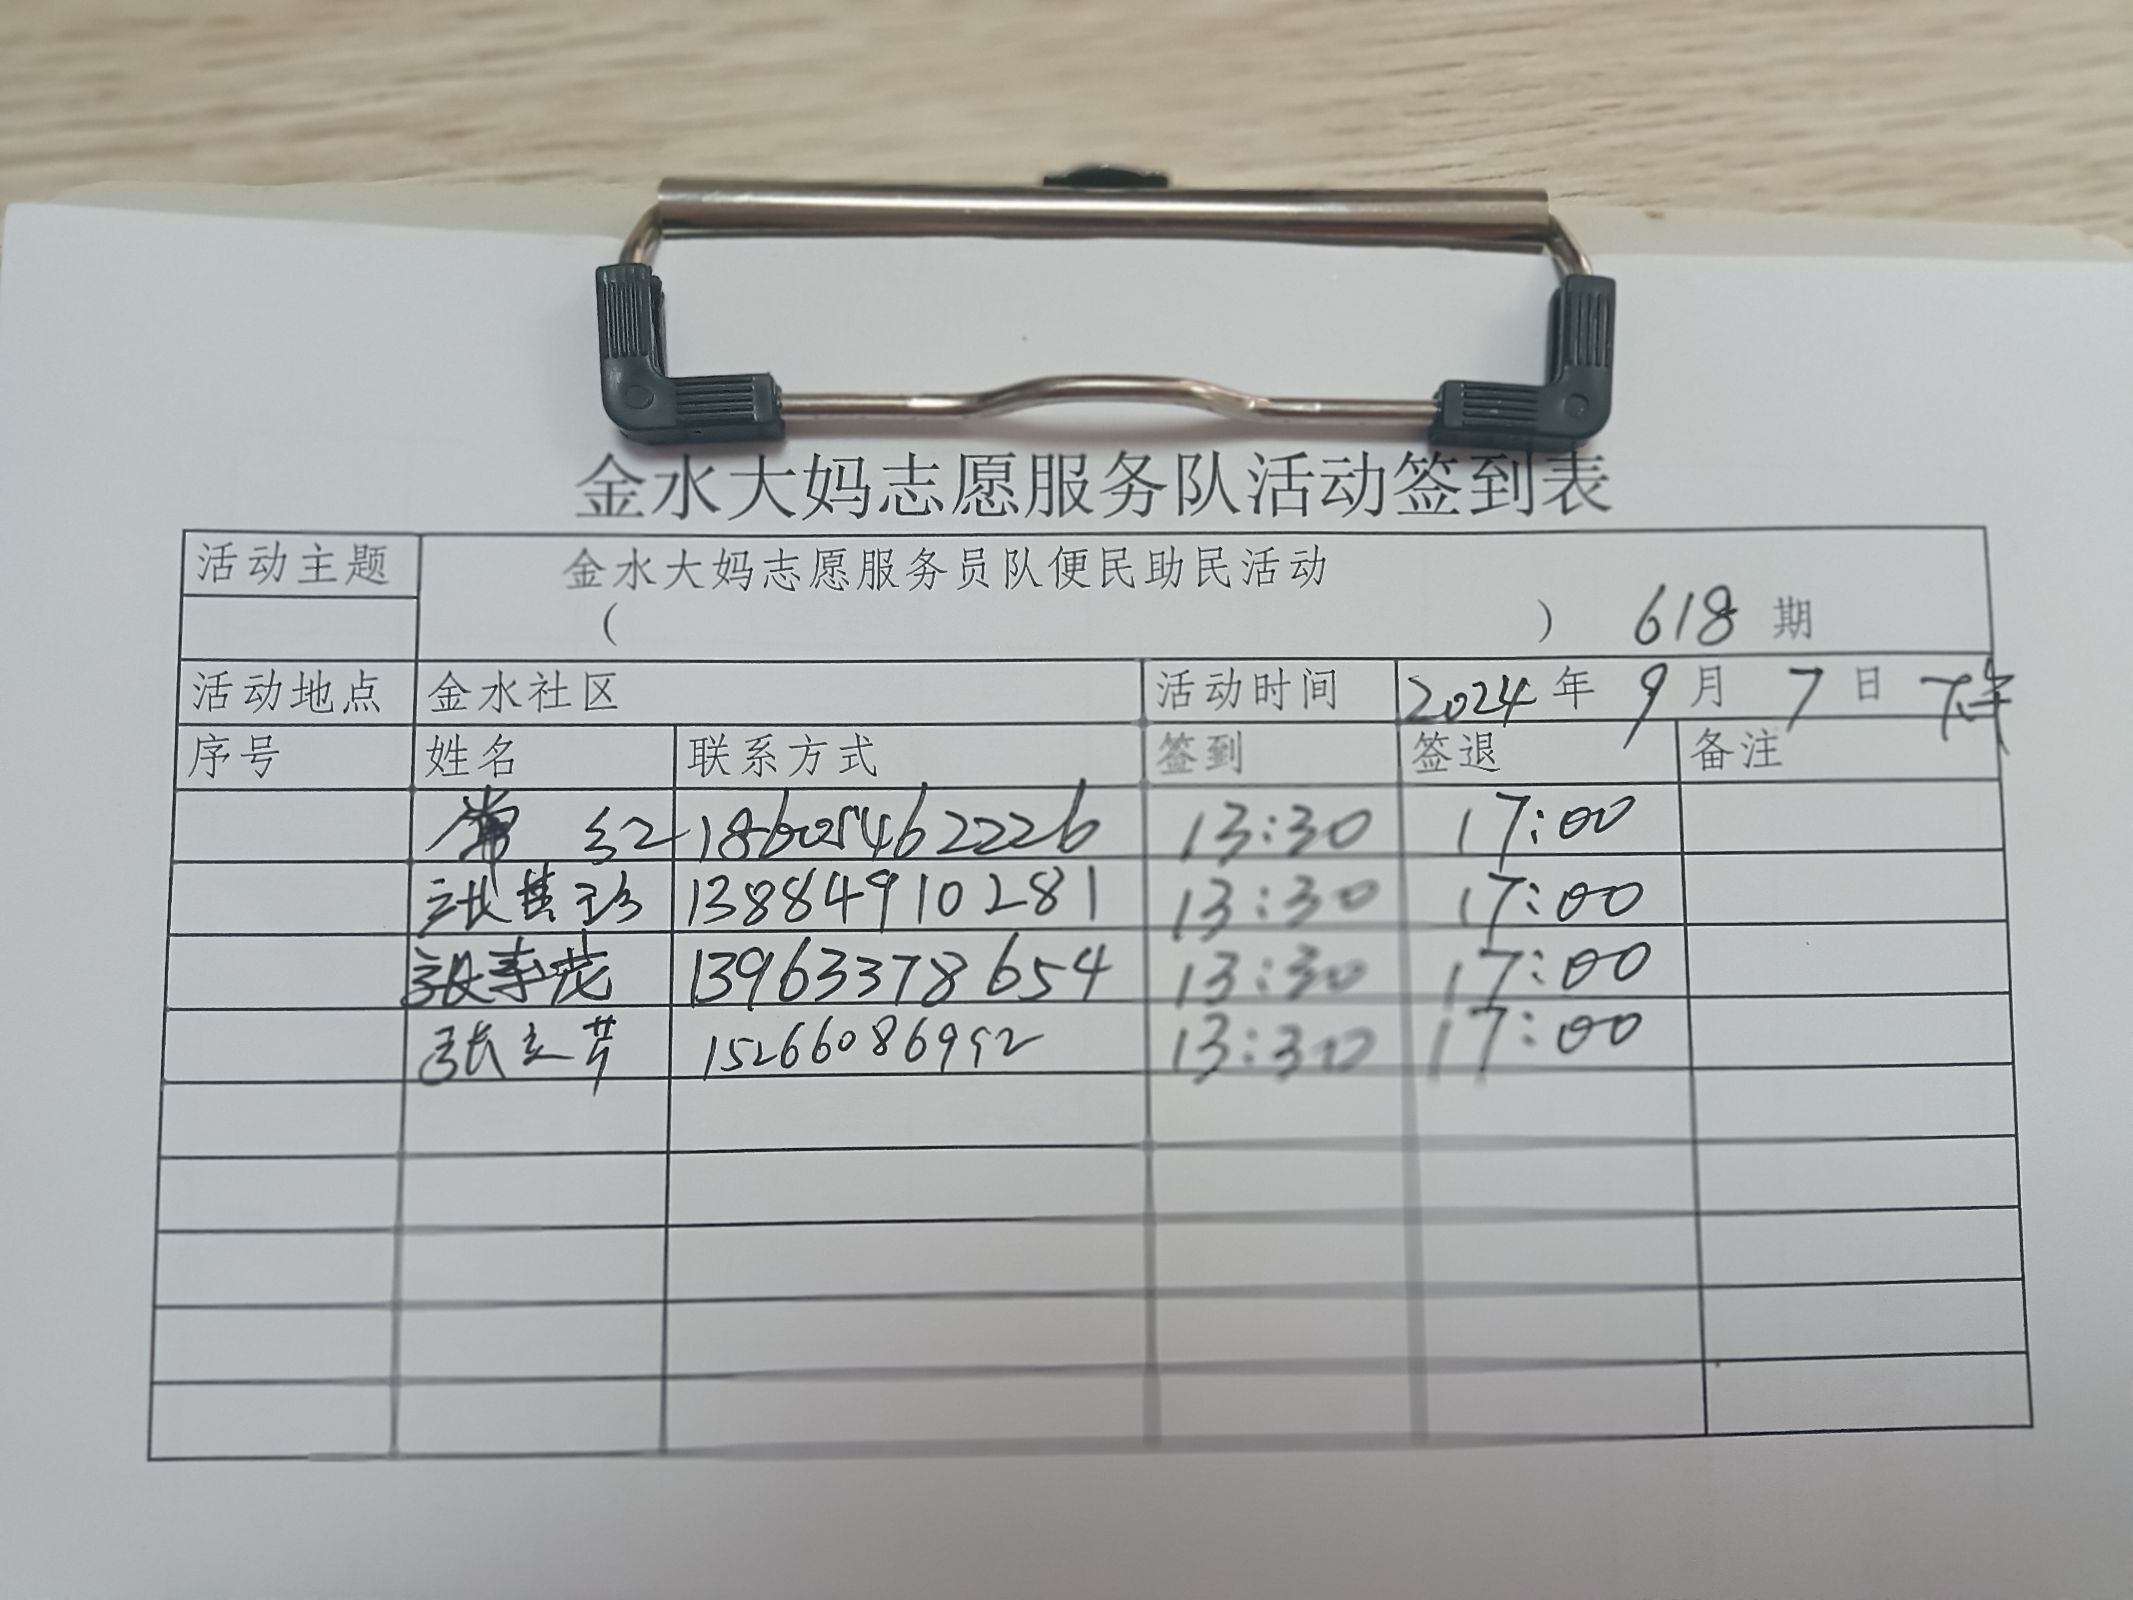 金水大妈志愿服务队活动签到表
活动主题 金水大妈志愿服务员队便民助民活动
( ) 618 期
活动地点 金水社区 活动时间 2024 年 9 月 7 日 下午
序号 姓名 联系方式 签到 签退 备注
常 红 18605462226 13:30 17:00
张桂珍 13884910281 13:30 17:00
张 13963378654 13:30 17:00
张立芹 15266086992 13:30 17:00